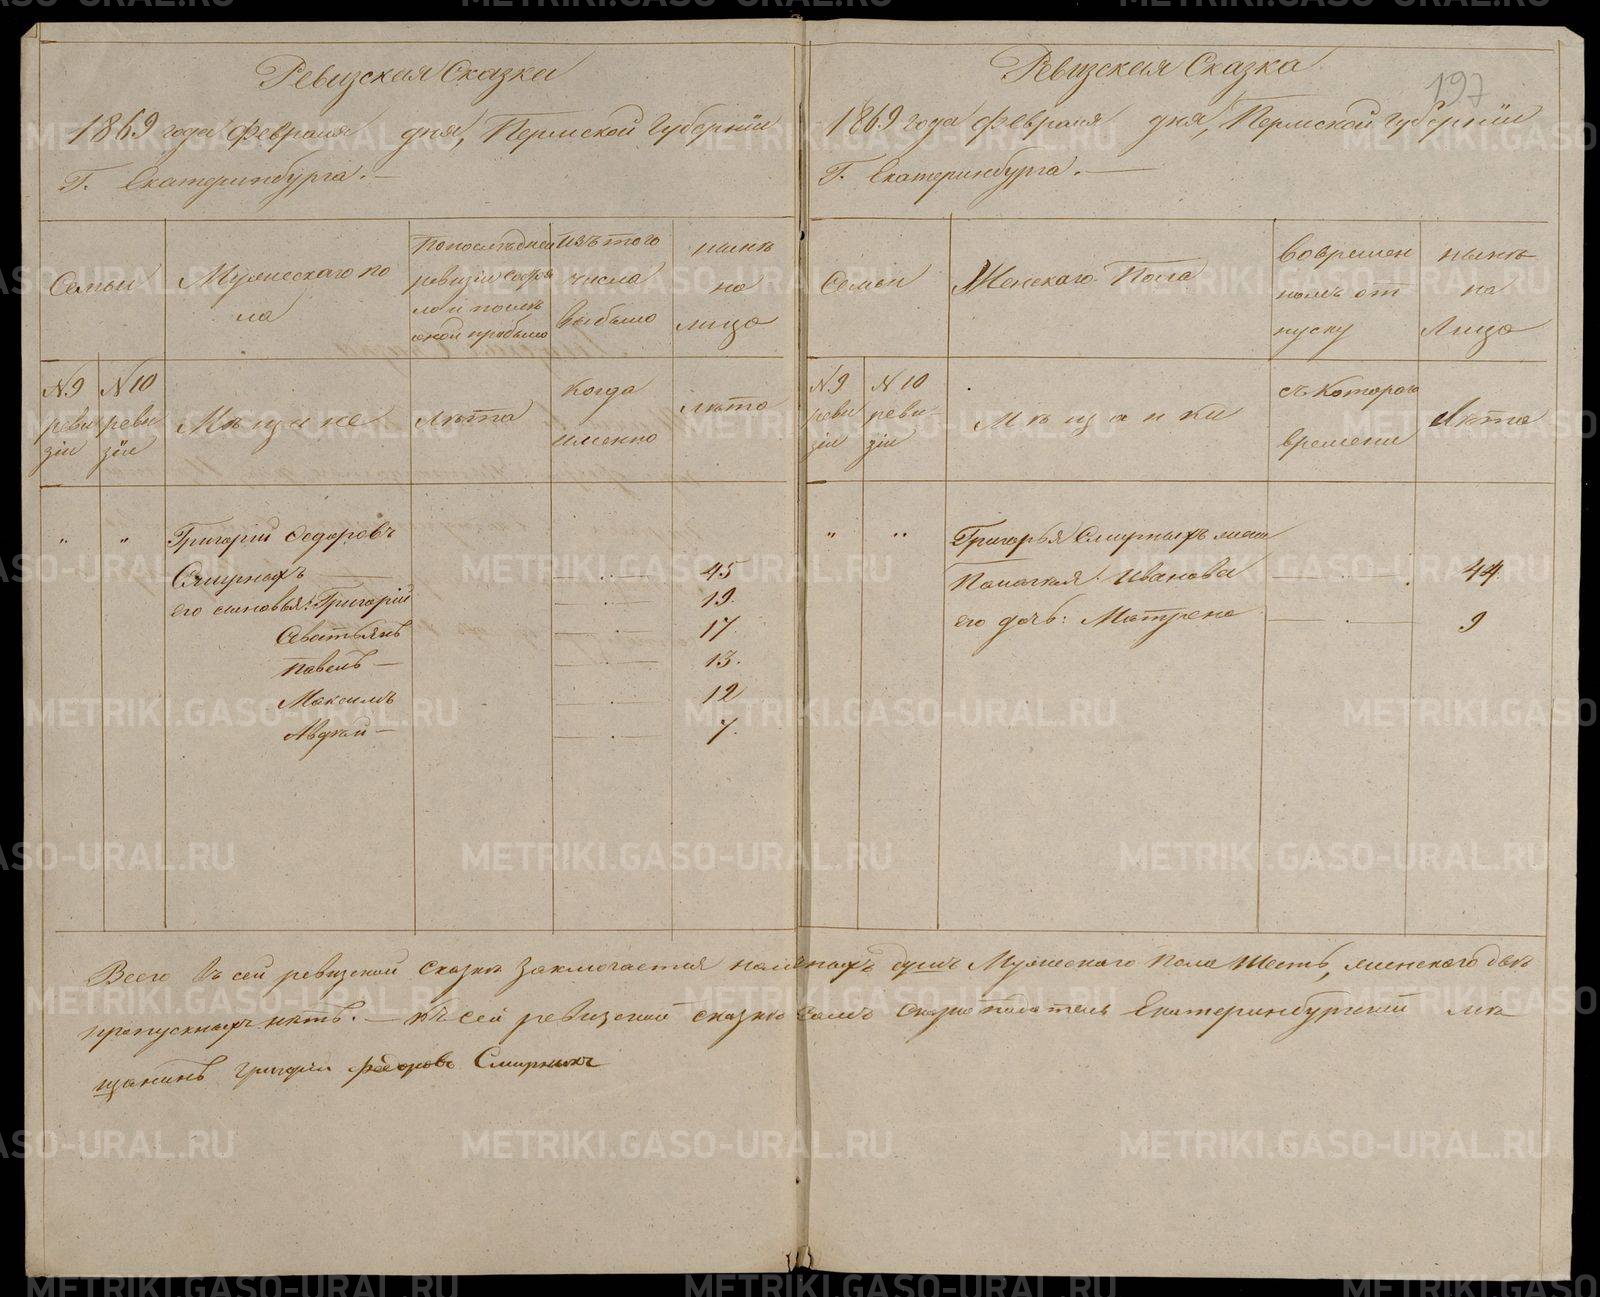 Ревизская Сказка
1869 года февраля дня, Пермской Губернїи
Г. Екатеринбурга. —
Семьи
Мужескаго по
ла
По последней
ревизіи состоя
ло и после
оной прибыло
Изъ того
числа
выбыло
нынѣ
на
лицо
№9
реви
зіи
№10
реви
зїи
Мѣщане
Лѣта
Когда
именно
лѣта
" "
Григорій Федоровъ
Смирныхъ — 45
его сыновья: Григорій 19.
Саватьянъ 17.
Павелъ — 13.
Максимъ 12
Авдкѣй — 7.
197
Ревизская Сказка
1869 года февраля дня, Пермской Губернїи
Г. Екатеринбурга. —
Семьи
Женскаго Пола
Во времен
номъ от
пуску
нынѣ
на
Лицо
№9
реви
зіи
№10
реви-
зіи
Мѣщанки
съ Котораго
времени
Лѣта
" "
Григорья Смирныхъ жена
Палагѣя Иванова 44.
его дочь: Матрена 9
Всего въ сей ревизской сказкѣ заключается наличныхъ душъ Мужескаго пола шесть, женского две
пропускныхъ нѣтъ. — къ сей ревизской сказкѣ самъ сказкоподатель Екатеринбургский мѣ
щанинъ Григорій Федоровъ Смирныхъ
METRIKI.GASO-URAL.RU